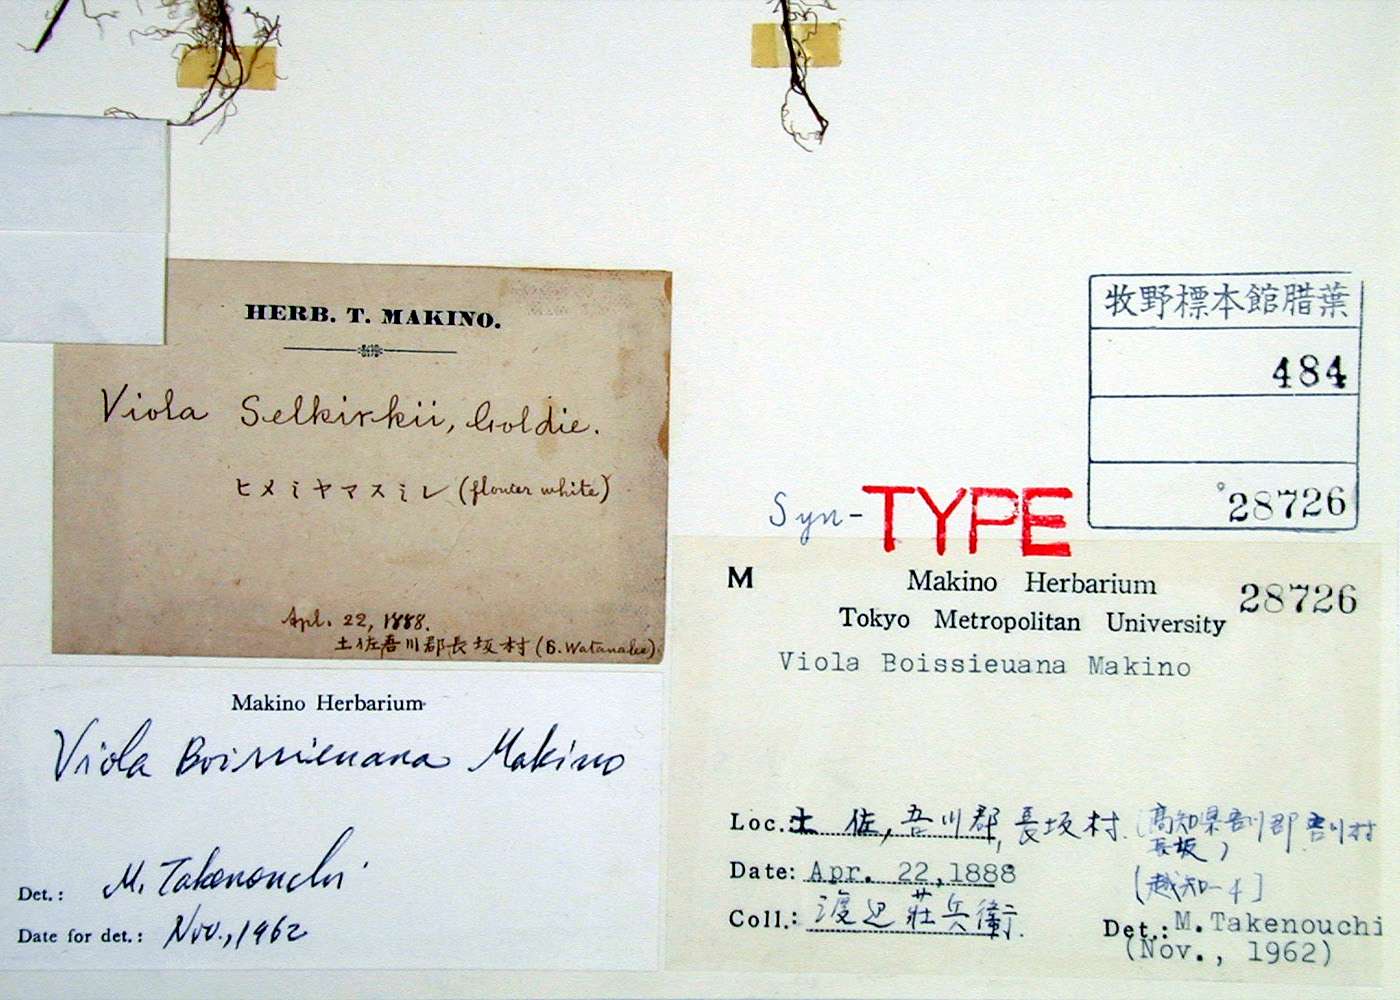 HERB. T. MAKINO.
Viola Selkirkii, Goldie.
ヒメミヤマスミレ (flower white)
Apl. 22, 1888.
土佐吾川郡長坂村 (S. Watanabe).
Makino Herbarium
Viola Boissieuana Makino
Det.: M. Takenouchi
Date for det.: Nov., 1962
牧野標本館腊葉
484
28726
Syn-TYPE
M Makino Herbarium 28726
Tokyo Metropolitan University
Viola Boissieuana Makino
Loc.: 土佐, 吾川郡, 長坂村. (高知県吾川郡吾川村
長坂)
Date: Apr. 22,1888
[越知-4]
Coll.: 渡辺荘兵衛.
Det.: M.Takenouchi
(Nov., 1962)